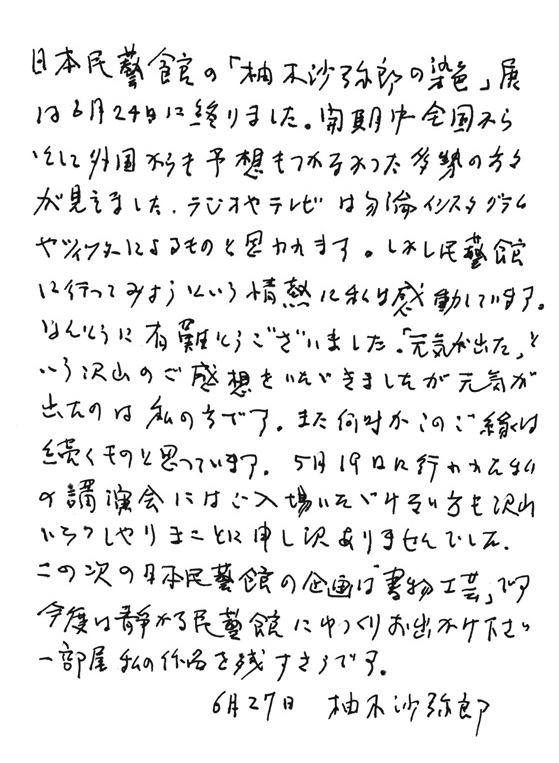 日本民藝館の「柚木沙弥郎の染色」展
は6月24日に終りました。開期中全国から
そして外国からも予想もつかなかった多勢の方々
が見えました。ラジオやテレビは勿論インスタグラム
やツイッターによるものと思われます。しかし民藝館
に行ってみようという情熱に私は感動しています。
ほんとうに有難とうございました。「元気が出た」と
いう沢山のご感想をいただきましたが元気が
出たのは私の方です。また何時かこのご縁は
続くものと思っています。5月19日に行われた私
の講演会にはご入場いただけない方も沢山
いらっしゃりまことに申し訳ありませんでした。
この次の日本民藝館の企画は「書物工芸」です
今度は静かな民藝館にゆっくりお出かけ下さい
一部屋私の作品を残すそうです。
6月27日 柚木沙弥郎